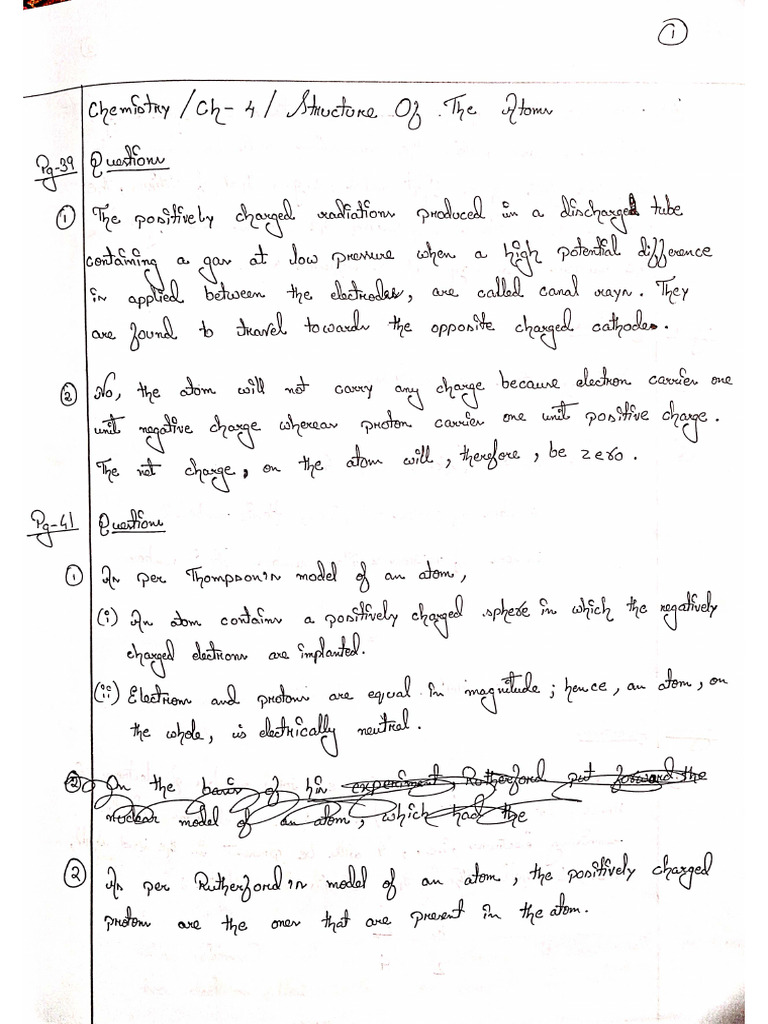 1
Chemistry / Ch - 4 / Structure Of The Atom
Pg-39 Questions
1 The positively charged radiations produced in a discharged tube
containing a gas at low pressure when a high potential difference
is applied between the electrodes, are called canal rays. They
are found to travel towards the opposite charged cathode.
2 No, the atom will not carry any charge because electron carries one
unit negative charge whereas proton carries one unit positive charge.
The net charge, on the atom will, therefore, be zero.
Pg-41 Questions
1 As per Thompson's model of an atom,
(i) An atom contains a positively charged sphere in which the negatively
charged electrons are implanted.
(ii) Electrons and protons are equal in magnitude; hence, an atom, on
the whole, is electrically neutral.
2 On the basis of his experiment Rutherford put forward the
nuclear model of an atom, which had the
2 As per Rutherford's model of an atom, the positively charged
protons are the ones that are present in the atom.